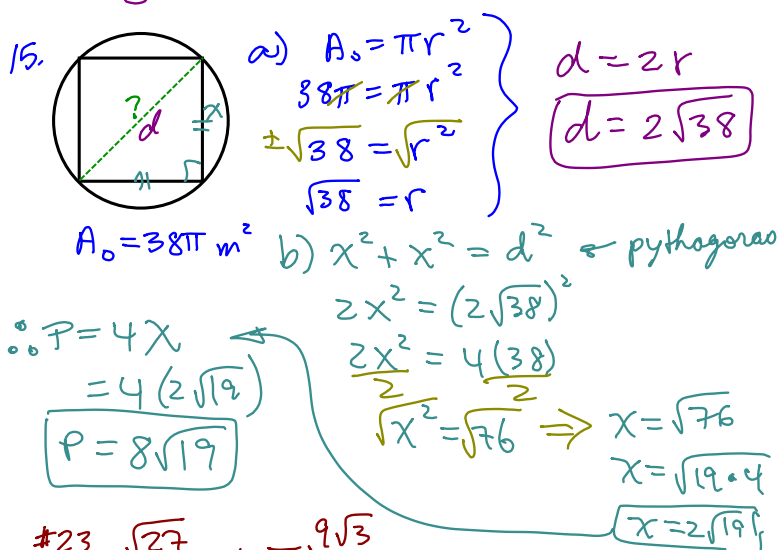 15.
?
d
x
a) A₀ = πr²
38π = πr²
±√38 = √r²
√38 = r
d = 2r
d = 2√38
A₀ = 38π m²
b) x² + x² = d² ← pythagoras
2x² = (2√38)²
2x² = 4(38)
2 2
√x² = √76 ⇒ x = √76
x = √19•4
x = 2√19
∴ P = 4x
= 4(2√19)
P = 8√19
#23 √27 9√3